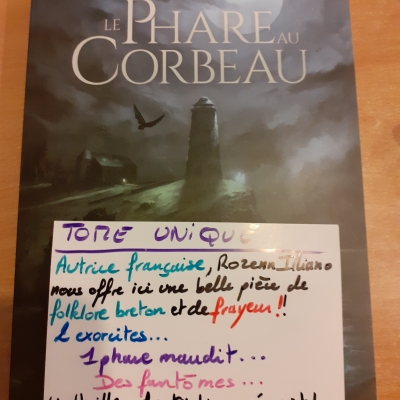 LE PHARE AU
CORBEAU
TOME UNIQUE
Autrice française, Rozenn Illiano
nous offre ici une belle pièce de
folklore breton et de frayeur!!
2 exorcites...
1 phare maudit...
Des fantômes...